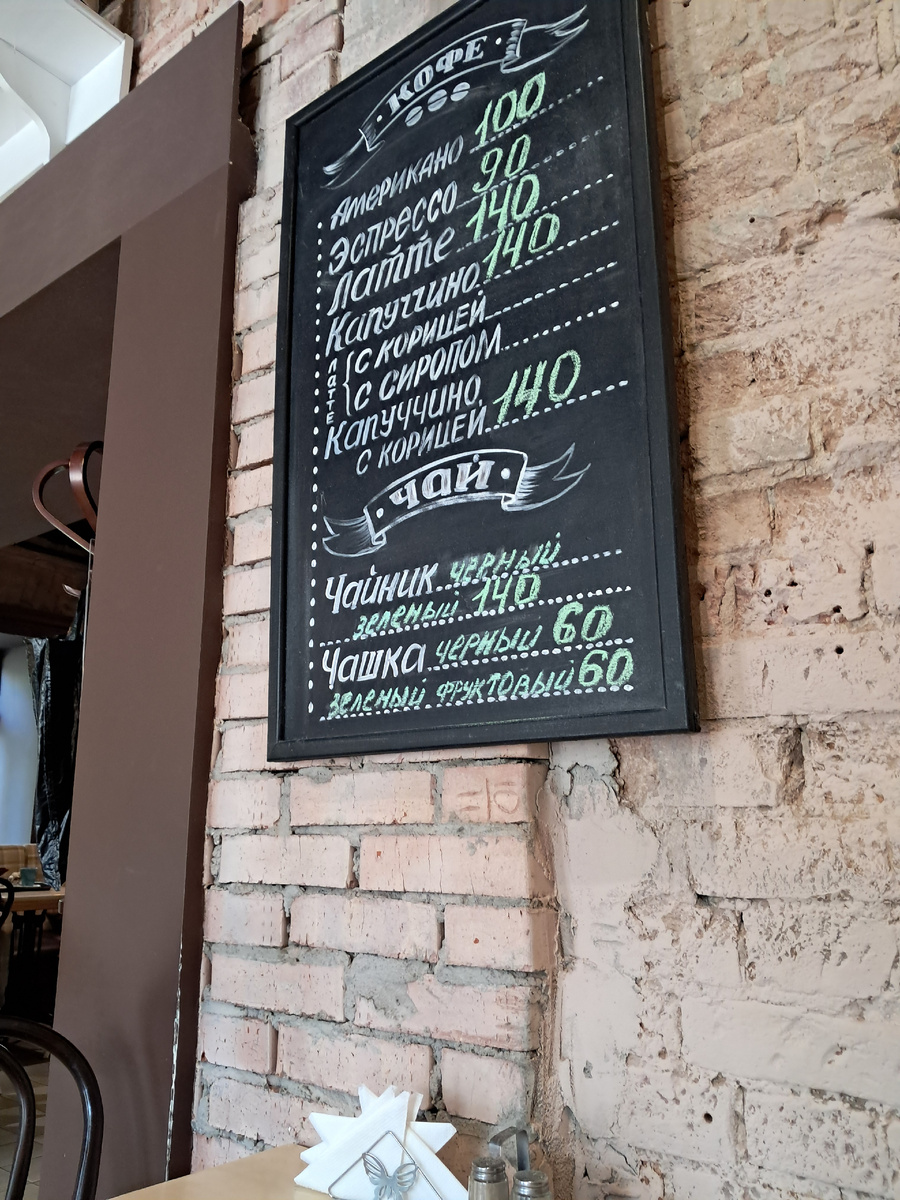 • КОФЕ •
Американо 100
Эспрессо 90
Латте 140
Капуччино 140
латте { с корицей
с сиропом
Капуччино
с корицей 140
• ЧАЙ •
Чайник черный
зеленый 140
Чашка черный 60
зеленый фруктовый 60